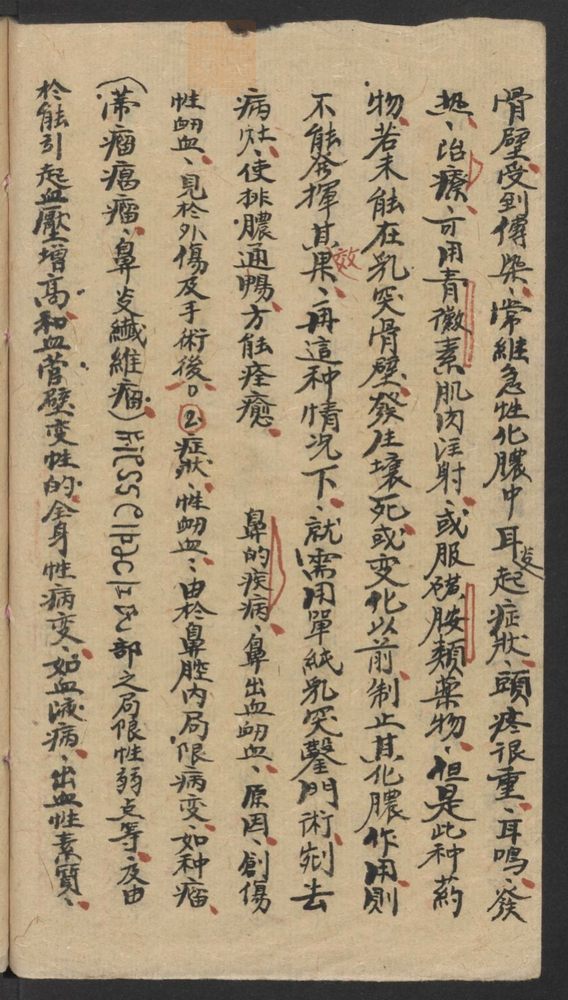 骨壁受到傳染、常維急性化膿中耳发起症狀、頭疼很重、耳鳴、發
熱、治療、可用青黴素肌肉注射、或服磺胺類薬物、但是此种药
物、若未能在乳突骨壁、發生壞死或变化以前、制止其化膿作用、則
不能發揮其效果、再這种情况下、就需用單純乳突鑿開術、剜去
病灶、使排膿通暢、方能痊癒、 鼻的疾病、鼻出血衄血、原因、創傷
性衄血、見於外傷及手術後。②症狀性衄血、由於鼻腔内局限病变、如种瘤、
(蒂瘤瘜瘤、鼻炎纖維瘤)部之局限性弱点等、及由
於能引起血壓增高、和血管壁变性的全身性病变、如血液病、出血性素質、